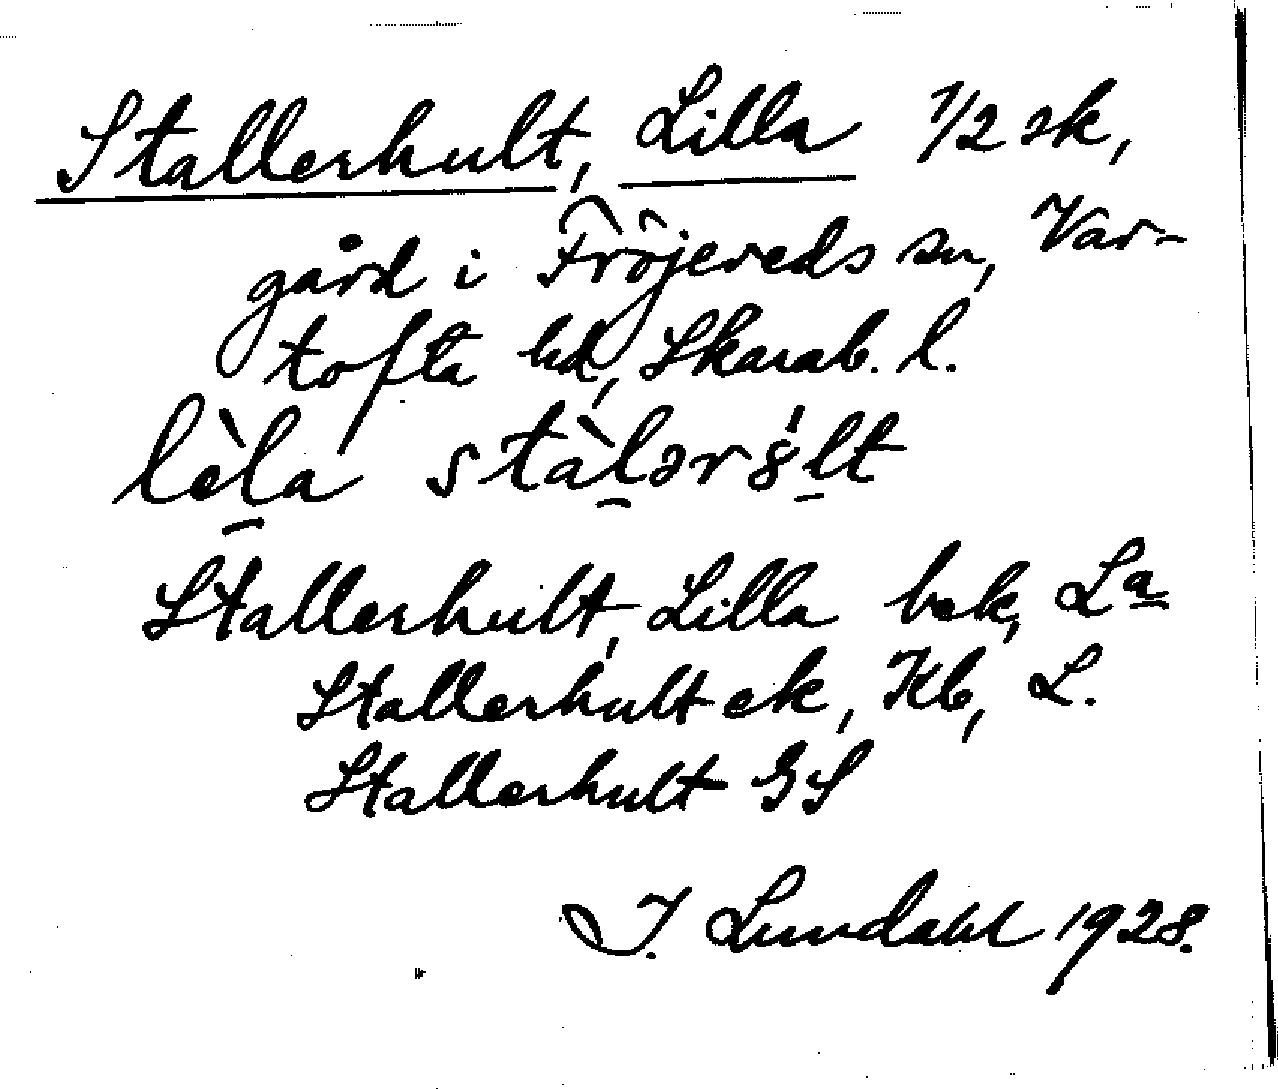 Stallerhult, Lilla 1/2 sk,
gård i Fröjereds sn, Var-
tofta hd, Skarab. l.
lèla stàlər8lt
Stallerhult, Lilla bek, La
Stallerhult ek, Kb, L.
Stallerhult GS
I. Lundahl 1928.